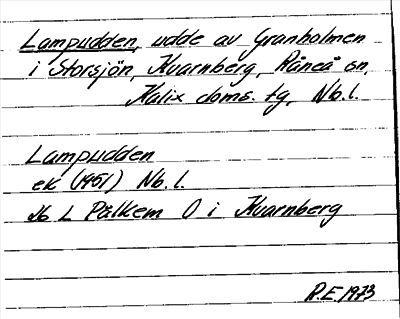 Lampudden, udde av Granholmen
i Storsjön, Kvarnberg, Råneå sn,
Kalix doms. tg, Nb.l.
Lampudden
ek (1951) Nb.l.
Nb L Pålkem O i Kvarnberg
R.E. 1973